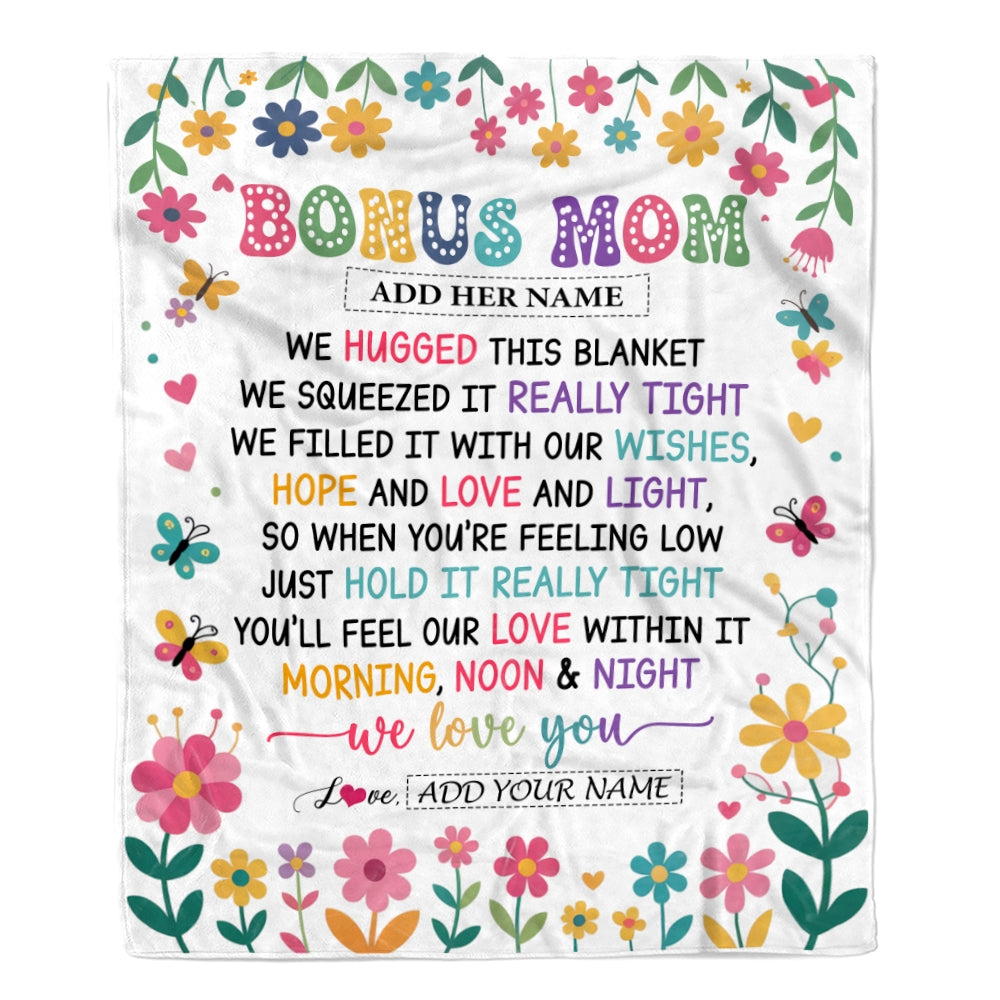 BONUS MOM
ADD HER NAME
WE HUGGED THIS BLANKET
WE SQUEEZED IT REALLY TIGHT
WE FILLED IT WITH OUR WISHES,
HOPE AND LOVE AND LIGHT,
SO WHEN YOU'RE FEELING LOW
JUST HOLD IT REALLY TIGHT
YOU'LL FEEL OUR LOVE WITHIN IT
MORNING, NOON & NIGHT
we love you
Love, ADD YOUR NAME